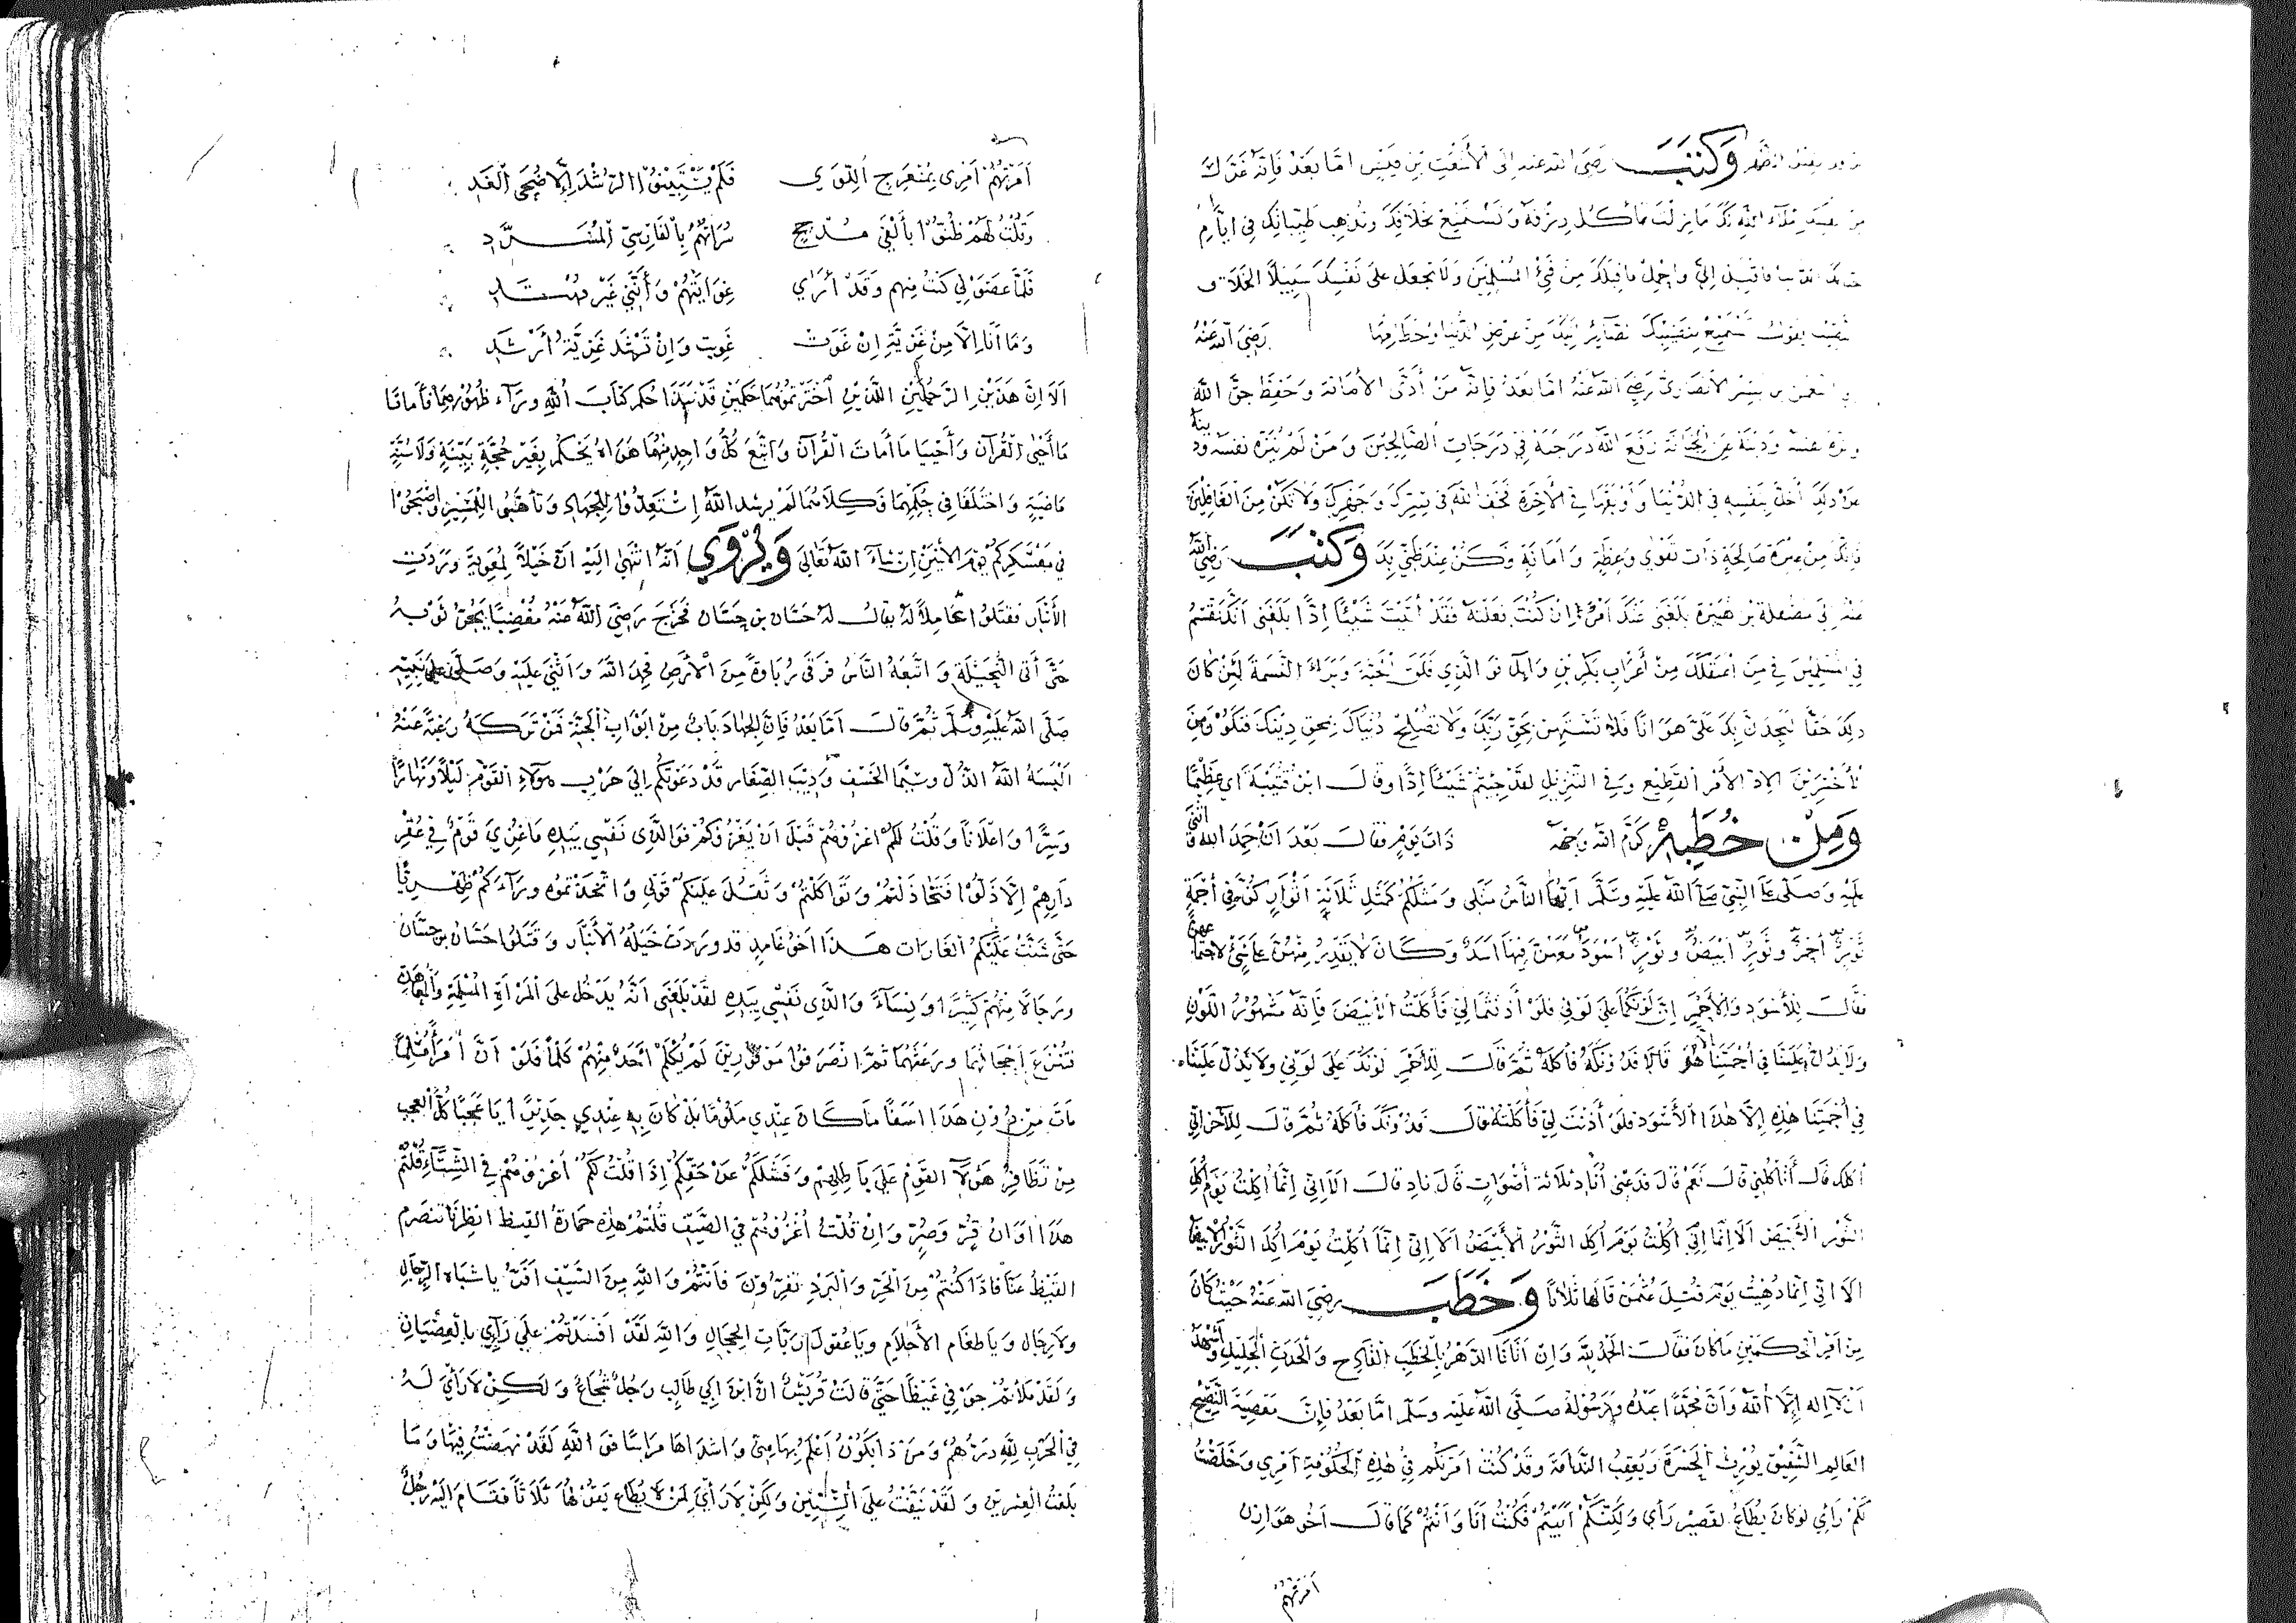 وَكَتَبَ رَضِيَ الله عنه الى الأَشْعَثِ بْنِ قَيْسٍ امّا بَعْدُ فَاِنَّهُ غَرَّكَ
مِنْ نَفْسِكَ اِمْلآء اللهِ لكَ مَا زِلْتَ تَأكُلُ رِزْقَهُ وَتَسْتَمْتِعُ بِخَلَاقِكَ وَتُذْهِبُ طَيِّبَاتِكَ فِي ايَّامِ
فَاقْبِلْ اِلَيَّ وَاحْمِلْ مَا قِبَلَكَ مِنْ فَيْءِ المُسْلِمِينَ وَلَا تَجْعَل عَلَى نَفْسِكَ سَبِيلاً الخَلَاق
النصِيب يقول تَسْتَمْتِعُ بِنَصِيبِكَ مِنْ عَرَضِ الدُّنْيَا وحُطَامِهَا رَضِيَ اللهُ عَنْهُ
بشير الأنْصَارِيِّ رَضِيَ اللهُ عَنْهُ امّا بَعْدُ فَاِنَّهُ مَنْ أَدَّى الأَمَانَةَ وَحَفِظَ حَقَّ اللهِ
ونزّه نفسَه وَدِينَهُ عَنِ الخِيَانَة رَفَعَ اللهُ دَرَجَتَهُ فِي دَرَجَاتِ الصَّالِحِينَ وَمَنْ لَمْ يُنَزِّهْ نفسَهُ ودِينَهُ
عَنْ ذَلِكَ أَخَلَّ بِنَفْسِهِ فِي الدُّنْيَا وَأَوْبَقَهَا فِي الأَخِرَةِ فَخَفِ اللهَ فِي سِرِّكَ وَجَهْرِكَ وَلَا تَكُنْ مِنَ الغَافِلِينَ
فَاِنَّكَ مِنْ عَشِيرَةٍ صَالِحَةٍ ذَاتِ تَقْوَى وَعِظَةٍ وَأَمَانَةٍ وَكُنْ عِنْدَ ظَنِّي بِكَ وَكَتَبَ رَضِيَ اللهُ
عَنْهُ اِلَى مَصْقَلَةَ بْنِ هُبَيْرَةَ بَلَغَنِي عَنْكَ اَمْرٌ اِنْ كُنْتَ فعَلْتَهُ فَقَدْ أَتَيْتَ شَيْئًا اِدًّا بَلَغَنِي اَنَّكَ تَقْسِمُ
فِي المُسْلِمِينَ فِي مَنِ اعْتَقَلَكَ مِنْ أَعْرَابِ بَكْرِ بْنِ وَائِلٍ فَوَ الَّذِي فَلَقَ الْحَبَّةَ وَبَرَأَ النَّسَمَةَ لَئِنْ كَانَ
ذَلِكَ حَقًّا لَتَجِدَنَّ بِكَ عَلَيَّ هَوَانًا فَلَا تَسْتَهِنْ بِحَقِّ رَبِّكَ وَلَا تُصْلِحْ دُنْيَاكَ بِمَحْقِ دِينِكَ فَتَكُونَ مِنَ
الأَخْسَرِينَ الاِدّ الأَمْر الفَظِيع وَفِي التَّنْزِيلِ لقَدْ جِئْتُمْ شَيْئًا اِدًّا وقَالَ ابْنُ قُتَيْبَةَ اي عَظِيمًا
وَمِنْ خُطَبِهِ كَرَّمَ اللهُ وَجْهَهُ ذَاتَ يَوْمٍ فقَالَ بَعْدَ اَنْ حَمِدَ اللهَ وَاثْنَى
عَلَيْهِ وَصَلَّى عَلَى النَّبِيِّ صَلَّى اللهُ عَلَيْهِ وَسَلَّمَ اَيُّهَا النَّاسُ مَثَلِي وَمَثَلُكُمْ كَمَثَلِ ثَلَاثَةِ أَثْوَارٍ كُنَّ فِي أَجَمَةٍ
ثَوْرٌ أَحْمَرُ وَثَوْرٌ أَبْيَضُ وَثَوْرٌ أَسْوَدُ مَعَهُنَّ فِيهَا أَسَدٌ وَكَانَ لَا يَقْدِرُ مِنْهُنَّ عَلَى شَيْءٍ لاجْتِمَاعِهِنَّ
فَقَالَ لِلأَسْوَدِ وَالأَحْمَرِ اِنَّ لَوْنَكُمَا عَلَى لَوْنِي فَلَوْ أَذِنْتُمَا لِي فَأَكَلْتُ الأَبْيَضَ فَاِنَّهُ مَشْهُورُ اللَّوْنِ
وَلَا يَدُلُّ عَلَيْنَا فِي أَجَمَتِنَا اِلَّا هُوَ قَالَا فَدُونَكَهُ فَأَكَلَهُ ثُمَّ قَالَ لِلأَحْمَرِ لَوْنُكَ عَلَى لَوْنِي وَلَا يَدُلُّ عَلَيْنَا
فِي أَجَمَتِنَا هَذِهِ اِلَّا هَذَا الأَسْوَد فَلَوْ أَذِنْتَ لِي فَأَكَلْتُهُ قَالَ فَدُونَكَ فَأَكَلَهُ ثُمَّ قَالَ لِلآخَرِ اِنِّي
آكلك قَالَ أَتَأكُلُنِي قَالَ نَعَمْ قَالَ فَدَعْنِي أُنَادِ ثَلَاثَةَ أَصْوَاتٍ قَالَ نَادِ قَالَ اَلَا اِنِّي اِنَّمَا اُكِلْتُ يَوْمَ اُكِلَ
الثَّوْرُ الأَبْيَضُ اَلَا اِنِّي اِنَّمَا اُكِلْتُ يَوْمَ اُكِلَ الثَّوْرُ الأَبْيَضُ اَلَا اِنِّي اِنَّمَا اُكِلْتُ يَوْمَ اُكِلَ الثَّوْرُ الأَبْيَضُ
اَلَا اِنِّي اِنَّمَا وُهِنْتُ يَوْمَ قُتِلَ عُثْمَنُ قَالَهَا ثَلَاثًا وَخَطَبَ رَضِيَ اللهُ عَنْهُ حَيْثُ كَانَ
مِنْ اَمْرِ الحَكَمَيْنِ مَا كَانَ فَقَالَ الحَمْدُ لِلّٰهِ وَاِنْ أَتَانَا الدَّهْرُ بِالخَطْبِ الفَادِحِ وَالْحَدَثِ الْجَلِيلِ وَأَشْهَدُ
اَنْ لَا اِلَهَ اِلَّا اللهُ وَاَنَّ مُحَمَّدًا عَبْدُهُ وَرَسُولُهُ صَلَّى اللهُ عَلَيْهِ وَسَلَّمَ امَّا بَعْدُ فَاِنَّ مَعْصِيَةَ النَّصِيحِ
العَالِمِ الشَّفِيقِ يُورِثُ الْحَسْرَةَ وَيُعْقِبُ النَّدَامَةَ وَقَدْ كُنْتُ اَمَرْتُكُمْ فِي هَذِهِ الْحُكُومَةِ اَمْرِي وَنَخَلْتُ
لَكُمْ رَأيِي لَوْ كَانَ يُطَاعُ لِقَصِيرٍ رَأيٌ وَلَكِنَّكُمْ أَبَيْتُمْ فَكُنْتُ أَنَا وَأَنْتُمْ كَمَا قَالَ أَخُو هَوَازِنَ
اَمَرْتُهُمُ
اَمَرْتُهُمُ اَمْرِي بِمُنْعَرَجِ اللِّوَى فَلَمْ يَسْتَبِينُوا الرُّشْدَ اِلَّا ضُحَى الْغَدِ
وَقُلْتُ لَهُمْ ظُنُّوا بِأَلْفَيْ مُدَجَّجٍ سَرَاتُهُمُ بِالْفَارِسِيِّ الْمُسَرَّدِ
فَلَمَّا عَصَوْنِي كُنْتُ مِنْهُمْ وَقَدْ أَرَى غِوَايَتَهُمْ وَأَنَّنِي غَيْرُ مُهْتَدِ
وَمَا أَنَا اِلَّا مِنْ غَزِيَّةَ اِنْ غَوَتْ غَوَيْتُ وَاِنْ تَرْشُدْ غَزِيَّةُ أَرْشَدِ
اَلَا اِنَّ هَذَيْنِ الرَّجُلَيْنِ اللَّذَيْنِ اخْتَرْتُمُوهُمَا حَكَمَيْنِ قَدْ نَبَذَا حُكْمَ كِتَابِ اللهِ وَرَآءَ ظُهُورِهِمَا فَأَمَاتَا
مَا أَحْيَى الْقُرْآن وَأَحْيَيَا مَا أَمَاتَ الْقُرْآنُ وَاتَّبَعَ كُلُّ وَاحِدٍ مِنْهُمَا هَوَاهُ يَحْكُمُ بِغَيْرِ حُجَّةٍ بَيِّنَةٍ وَلَا سُنَّةٍ
مَاضِيَةٍ وَاخْتَلَفَا فِي حُكْمِهِمَا فَكِلَاهُمَا لَمْ يُرْشِدِ اللهُ اِسْتَعِدُّوا لِلْجِهَادِ وَتَأَهَّبُوا لِلْمَسِيرِ وَأَصْبِحُوا
فِي مُعَسْكَرِكُمْ يَوْمَ الأِثْنَيْنِ اِنْ شَاءَ اللهُ تَعَالَى وَيُرْوَى أَنَّهُ انْتَهَى اِلَيْهِ اَنَّ خَيْلاً لِمُعَوِيَةَ وَرَدَتِ
الأَنْبَارَ فَقَتَلُوا عَامِلاً لَهُ يقَالُ لهُ حَسَّان بن حَسَّان فَخَرَجَ رَضِيَ اللهُ عَنْهُ مُغْضِبًا يَجُرُّ ثَوْبَهُ
حَتَّى أَتَى النُّخَيْلَةَ وَاتَّبَعَهُ النَّاسُ فَرَقَى رُبَاوَةً مِنَ الْأَرْضِ فَحَمِدَ اللهَ وَأَثْنَى عَلَيْهِ وَصَلَّى عَلَى نَبِيِّهِ
صَلَّى اللهُ عَلَيْهِ وَسَلَّمَ ثُمَّ قَالَ اَمَّا بَعْدُ فَاِنَّ الجِهَادَ بَابٌ مِنْ أَبْوَابِ الْجَنَّةِ فَمَنْ تَرَكَهُ رَغْبَةً عَنْهُ
أَلْبَسَهُ اللهُ الذُّلَّ وَسِيْمَا الخَسْفِ وَدُيِّثَ الصَّغَار قَدْ دَعَوْتُكُمْ اِلَى حَرْبِ هَؤُلَاءِ القَوْمِ لَيْلاً وَنَهَارًا
وَسِرًّا وَاِعْلَانًا وَقُلْتُ لَكُمُ اغْزُوهُمْ قَبْلَ اَنْ يَغْزُوكُمْ فَوَ الَّذِي نَفْسِي بِيَدِهِ مَا غُزِيَ قَوْمٌ فِي عُقْرِ
دَارِهِمْ اِلَّا ذَلُّوا فَتَخَاذَلْتُمْ وَتَوَاكَلْتُمْ وَثَقُلَ عَلَيْكُمْ قَوْلِي وَاتَّخَذْتُمُوهُ وَرَآءَكُمْ ظِهْرِيًّا
حَتَّى شُنَّتْ عَلَيْكُمُ الغَارَات هَذَا اَخُو غَامِدٍ قَدْ وَرَدَتْ خَيْلُهُ الأَنْبَار وَقَتَلُوا حَسَّان بن حَسَّانَ
وَرِجَالًا مِنْهُمْ كَثِيْرًا وَنِسَاءً وَالَّذِي نَفْسِي بِيَدِهِ لَقَدْ بَلَغَنِي أَنَّهُ يَدْخُلُ عَلَى المَرْأَةِ المُسْلِمَةِ وَالْمُعَاهَدَةِ
فَتُنْزَعُ أَحْجَالُهُمَا وَرُعُثُهُمَا ثُمَّ انْصَرَفُوا مَوْفُورِينَ لَمْ يُكْلَمْ أَحَدٌ مِنْهُمْ كَلْمًا فَلَوْ اَنَّ امْرَأً مُسْلِمًا
مَاتَ مِنْ دُونِ هَذَا أَسَفًا مَا كَانَ عِنْدِي مَلُومًا بَلْ كَانَ بِهِ عِنْدِي جَدِيْرًا يَا عَجَبًا كُلَّ العَجَبِ
مِنْ تَظَافُرِ هَؤُلَاءِ القَوْمِ عَلَى بَاطِلِهِمْ وَفَشَلِكُمْ عَنْ حَقِّكُمْ اِذَا قُلْتُ لَكُمُ اغْزُوهُمْ فِي الشِّتَاءِ قُلْتُمْ
هَذَا أَوَانُ قُرٍّ وَصِرٍّ وَاِنْ قُلْتُ اُغْزُوهُمْ فِي الصَّيْفِ قُلْتُمْ هَذِهِ حَمَارَّةُ القَيْظِ انْظِرْنَا يَنْصَرِم
القَيْظُ عَنَّا فَاذَا كُنْتُمْ مِنَ الْحَرِّ وَالْبَرْدِ تَفِرُّونَ فَأَنْتُمْ وَاللهِ مِنَ السَّيْفِ أَفَرُّ يَا شِبَاهَ الرِّجَالِ
وَلَا رِجَال وَيَا طَغَام الأَحْلَامِ وَيَا عُقُولَ رَبَّاتِ الْحِجَالِ وَاللهِ لَقَدْ أَفْسَدْتُمْ عَلَيَّ رَأيِي بِالْعِصْيَانِ
وَلَقَدْ مَلَأْتُمْ جَوْفِي غَيْظًا حَتَّى قَالَتْ قُرَيْشٌ اِنَّ ابْنَ اَبِي طَالِبٍ رَجُلٌ شُجَاعٌ وَلَكِنْ لَا رَأيَ لَهُ
فِي الْحَرْبِ لِلّٰهِ دَرُّهُمْ وَمَنْ ذَا يَكُونُ أَعْلَمَ بِهَا مِنِّي وَأَشَدَّ لهَا مِرَاسًا فَوَ اللهِ لَقَدْ نَهَضْتُ فِيهَا وَمَا
بَلَغْتُ العِشْرِيْنَ وَلَقَدْ نَيَّفْتُ عَلَى السِّتِّيْنِ وَلَكِنْ لَا رَأيَ لِمَنْ لَا يُطَاعُ يَقُولهَا ثَلَاثًا فَقَامَ اِلَيْهِ رَجُلٌ